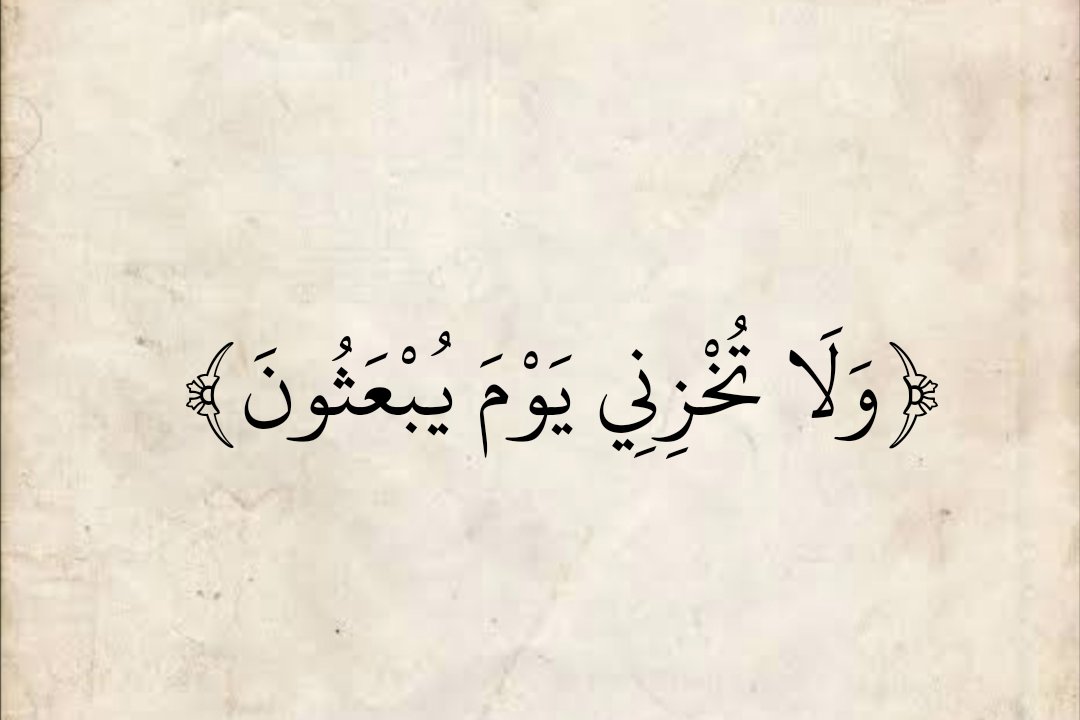 ﴿وَلَا تُخْزِنِي يَوْمَ يُبْعَثُونَ﴾